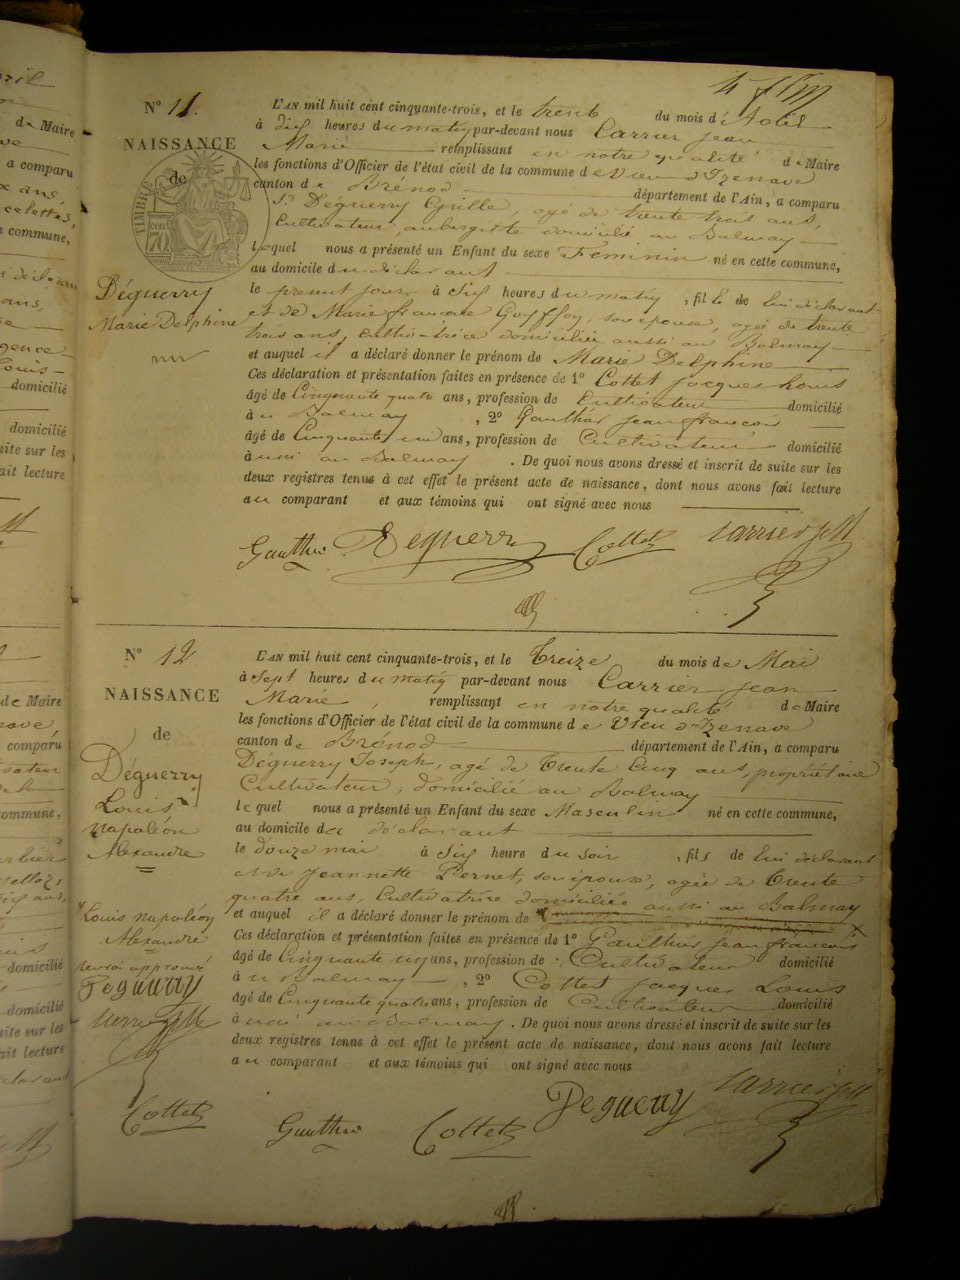 N° 11.
NAISSANCE
de
TIMBRE
70
Déguerry
Marie Delphine
L'AN mil huit cent cinquante-trois, et le trente du mois d'Avril
à dix heures du matin par-devant nous Carrier Jean
Marie remplissant en notre qualité de Maire
les fonctions d'Officier de l'état civil de la commune de Vieu d'Izenave
canton de Brénod département de l'Ain, a comparu
Sr Déguerry Cyrille, agé de trente trois ans,
Cultivateur, aubergiste domicilié au Balmay
Lequel nous a présenté un Enfant du sexe Feminin né en cette commune,
au domicile du déclarant
le présent jour à six heures du matin, fille de lui déclarant
et de Marie françoise Guyffoy, son épouse, agée de trente
trois ans, cultivatrice domiciliée aussi au Balmay
et auquel il a déclaré donner le prénom de Marie Delphine
Ces déclaration et présentation faites en présence de 1° Cottet Jacques Louis
âgé de Cinquante quatre ans, profession de Cultivateur domicilié
au Balmay, 2° Gauthier Jean françois
âgé de Cinquante un ans, profession de Cultivateur domicilié
aussi au Balmay. De quoi nous avons dressé et inscrit de suite sur les
deux registres tenus à cet effet le présent acte de naissance, dont nous avons fait lecture
au comparant et aux témoins qui ont signé avec nous
Gauthier Deguerry Cottet Carrier JM
N° 12
NAISSANCE
de
Déguerry
Louis
Napoléon
Alexandre
L'AN mil huit cent cinquante-trois, et le Treize du mois de Mai
à sept heures du matin par-devant nous Carrier Jean
Marie, remplissant en notre qualité de Maire
les fonctions d'Officier de l'état civil de la commune de Vieu d'Izenave
canton de Brénod département de l'Ain, a comparu
Déguerry Joseph, agé de Trente Cinq ans, propriétaire
Cultivateur, domicilié au Balmay
lequel nous a présenté un Enfant du sexe Masculin né en cette commune,
au domicile du déclarant
le douze mai à six heure du soir, fils de lui déclarant
et de Jeannette Pernet, son épouse, agée de Trente
quatre ans, Cultivatrice domiciliée aussi au Balmay
et auquel il a déclaré donner le prénom de
Ces déclaration et présentation faites en présence de 1° Gauthier Jean françois
âgé de Cinquante un ans, profession de Cultivateur domicilié
au Balmay, 2° Cottet Jacques Louis
âgé de Cinquante quatre ans, profession de Cultivateur domicilié
aussi au Balmay. De quoi nous avons dressé et inscrit de suite sur les
deux registres tenus à cet effet le présent acte de naissance, dont nous avons fait lecture
au comparant et aux témoins qui ont signé avec nous
Louis Napoléon
Alexandre
renvoi approuvé
Deguerry
Carrier JM
Cottet
Gauthier Cottet Deguerry Carrier JM